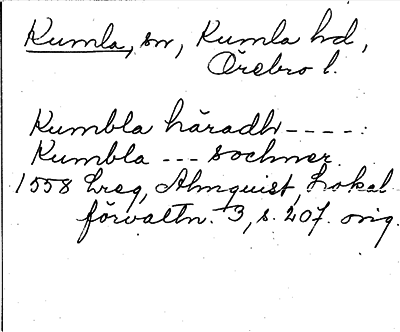 Kumla, sn, Kumla hd,
Örebro l.
Kumbla häradh - - - - :
Kumbla - - - sochner.
1558 Lreg, Almquist, Lokal
förvaltn. 3, s. 207. orig.